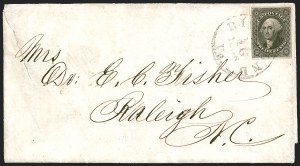 Mrs
Dr. E. C. Fisher
Raleigh
N.C.